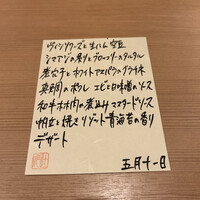 グィンサクーズと生ハム 空豆
シマアジの香りとブロッコリーのタルタル
煮穴子とホワイトアスパラのグラチネ
真鯛のポワレ エビと白味噌のソース
和牛ホホ肉の煮込み マスタードソース
帆立と焼きリゾット 青海苔の香り
デザート
五月十一日